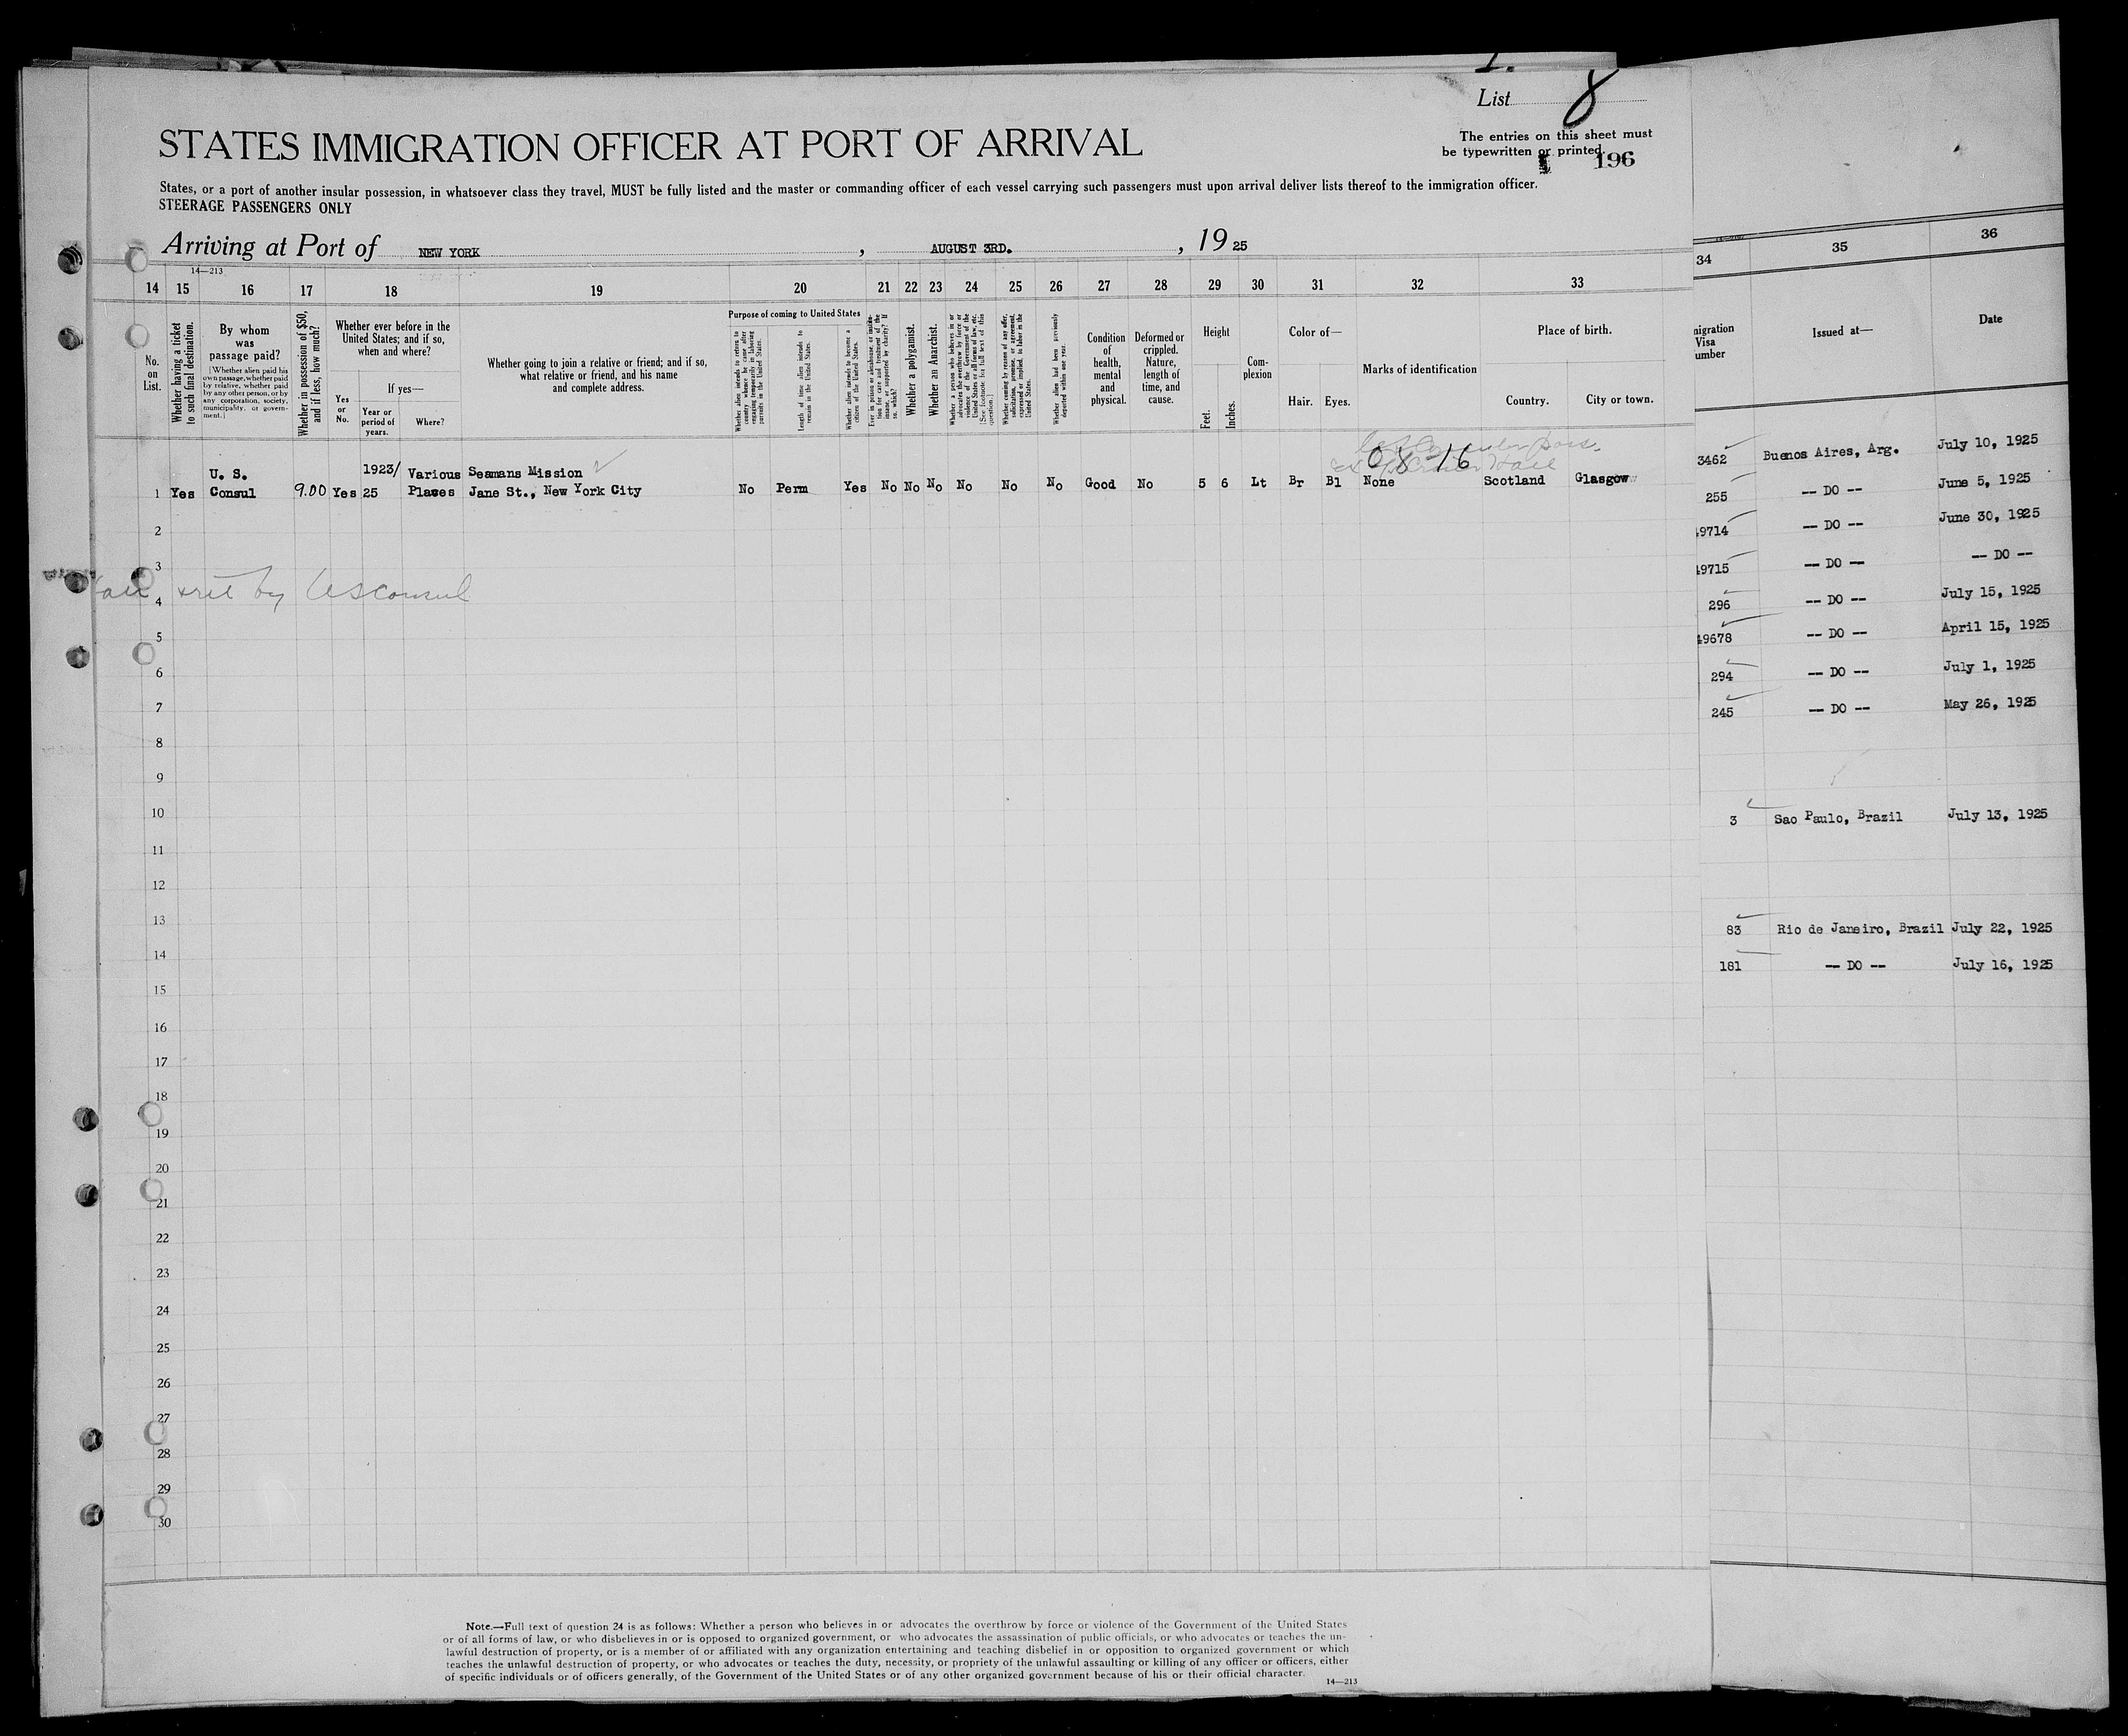 List 8
STATES IMMIGRATION OFFICER AT PORT OF ARRIVAL
The entries on this sheet must
be typewritten or printed.
196
States, or a port of another insular possession, in whatsoever class they travel, MUST be fully listed and the master or commanding officer of each vessel carrying such passengers must upon arrival deliver lists thereof to the immigration officer.
STEERAGE PASSENGERS ONLY
Arriving at Port of NEW YORK , AUGUST 3RD. , 19 25
14—213
14 15 16 17 18 19 20 21 22 23 24 25 26 27 28 29 30 31 32 33
No. on List.
Whether having a ticket to such final destination.
By whom was passage paid?
[Whether alien paid his own passage, whether paid by relative, whether paid by any other person, or by any corporation, society, municipality, or government.]
Whether in possession of $50, and if less, how much?
Whether ever before in the United States; and if so, when and where?
Yes or No.
If yes—
Year or period of years.
Where?
Whether going to join a relative or friend; and if so, what relative or friend, and his name and complete address.
Purpose of coming to United States
Whether alien intends to return to country whence he came after engaging temporarily in laboring pursuits in the United States.
Length of time alien intends to remain in the United States.
Whether alien intends to become a citizen of the United States.
Ever in prison or almshouse, or institution for care and treatment of the insane, or supported by charity? If so, which?
Whether a polygamist.
Whether an Anarchist.
Whether a person who believes in or advocates the overthrow by force or violence of the Government of the United States or of all forms of law, etc. [See footnote for full text of this question.]
Whether coming by reason of any offer, solicitation, promise, or agreement, expressed or implied, to labor in the United States.
Whether alien had been previously deported within one year.
Condition of health, mental and physical.
Deformed or crippled. Nature, length of time, and cause.
Height
Feet. Inches.
Complexion
Color of—
Hair. Eyes.
Marks of identification
Place of birth.
Country. City or town.
08 16
1 Yes U. S. Consul 9.00 Yes 1923/25 Various Places Seamans Mission Jane St., New York City No Perm Yes No No No No No No Good No 5 6 Lt Br Bl None Scotland Glasgow
2
3
by US Consul
4
5
6
7
8
9
10
11
12
13
14
15
16
17
18
19
20
21
22
23
24
25
26
27
28
29
30
Note.—Full text of question 24 is as follows: Whether a person who believes in or advocates the overthrow by force or violence of the Government of the United States
or of all forms of law, or who disbelieves in or is opposed to organized government, or who advocates the assassination of public officials, or who advocates or teaches the un-
lawful destruction of property, or is a member of or affiliated with any organization entertaining and teaching disbelief in or opposition to organized government or which
teaches the unlawful destruction of property, or who advocates or teaches the duty, necessity, or propriety of the unlawful assaulting or killing of any officer or officers, either
of specific individuals or of officers generally, of the Government of the United States or of any other organized government because of his or their official character.
14—213
34 35 36
migration Visa umber
Issued at—
Date
3462 Buenos Aires, Arg. July 10, 1925
255 -- DO -- June 5, 1925
49714 -- DO -- June 30, 1925
49715 -- DO -- -- DO --
296 -- DO -- July 15, 1925
49678 -- DO -- April 15, 1925
294 -- DO -- July 1, 1925
245 -- DO -- May 26, 1925
3 Sao Paulo, Brazil July 13, 1925
83 Rio de Janeiro, Brazil July 22, 1925
181 -- DO -- July 16, 1925